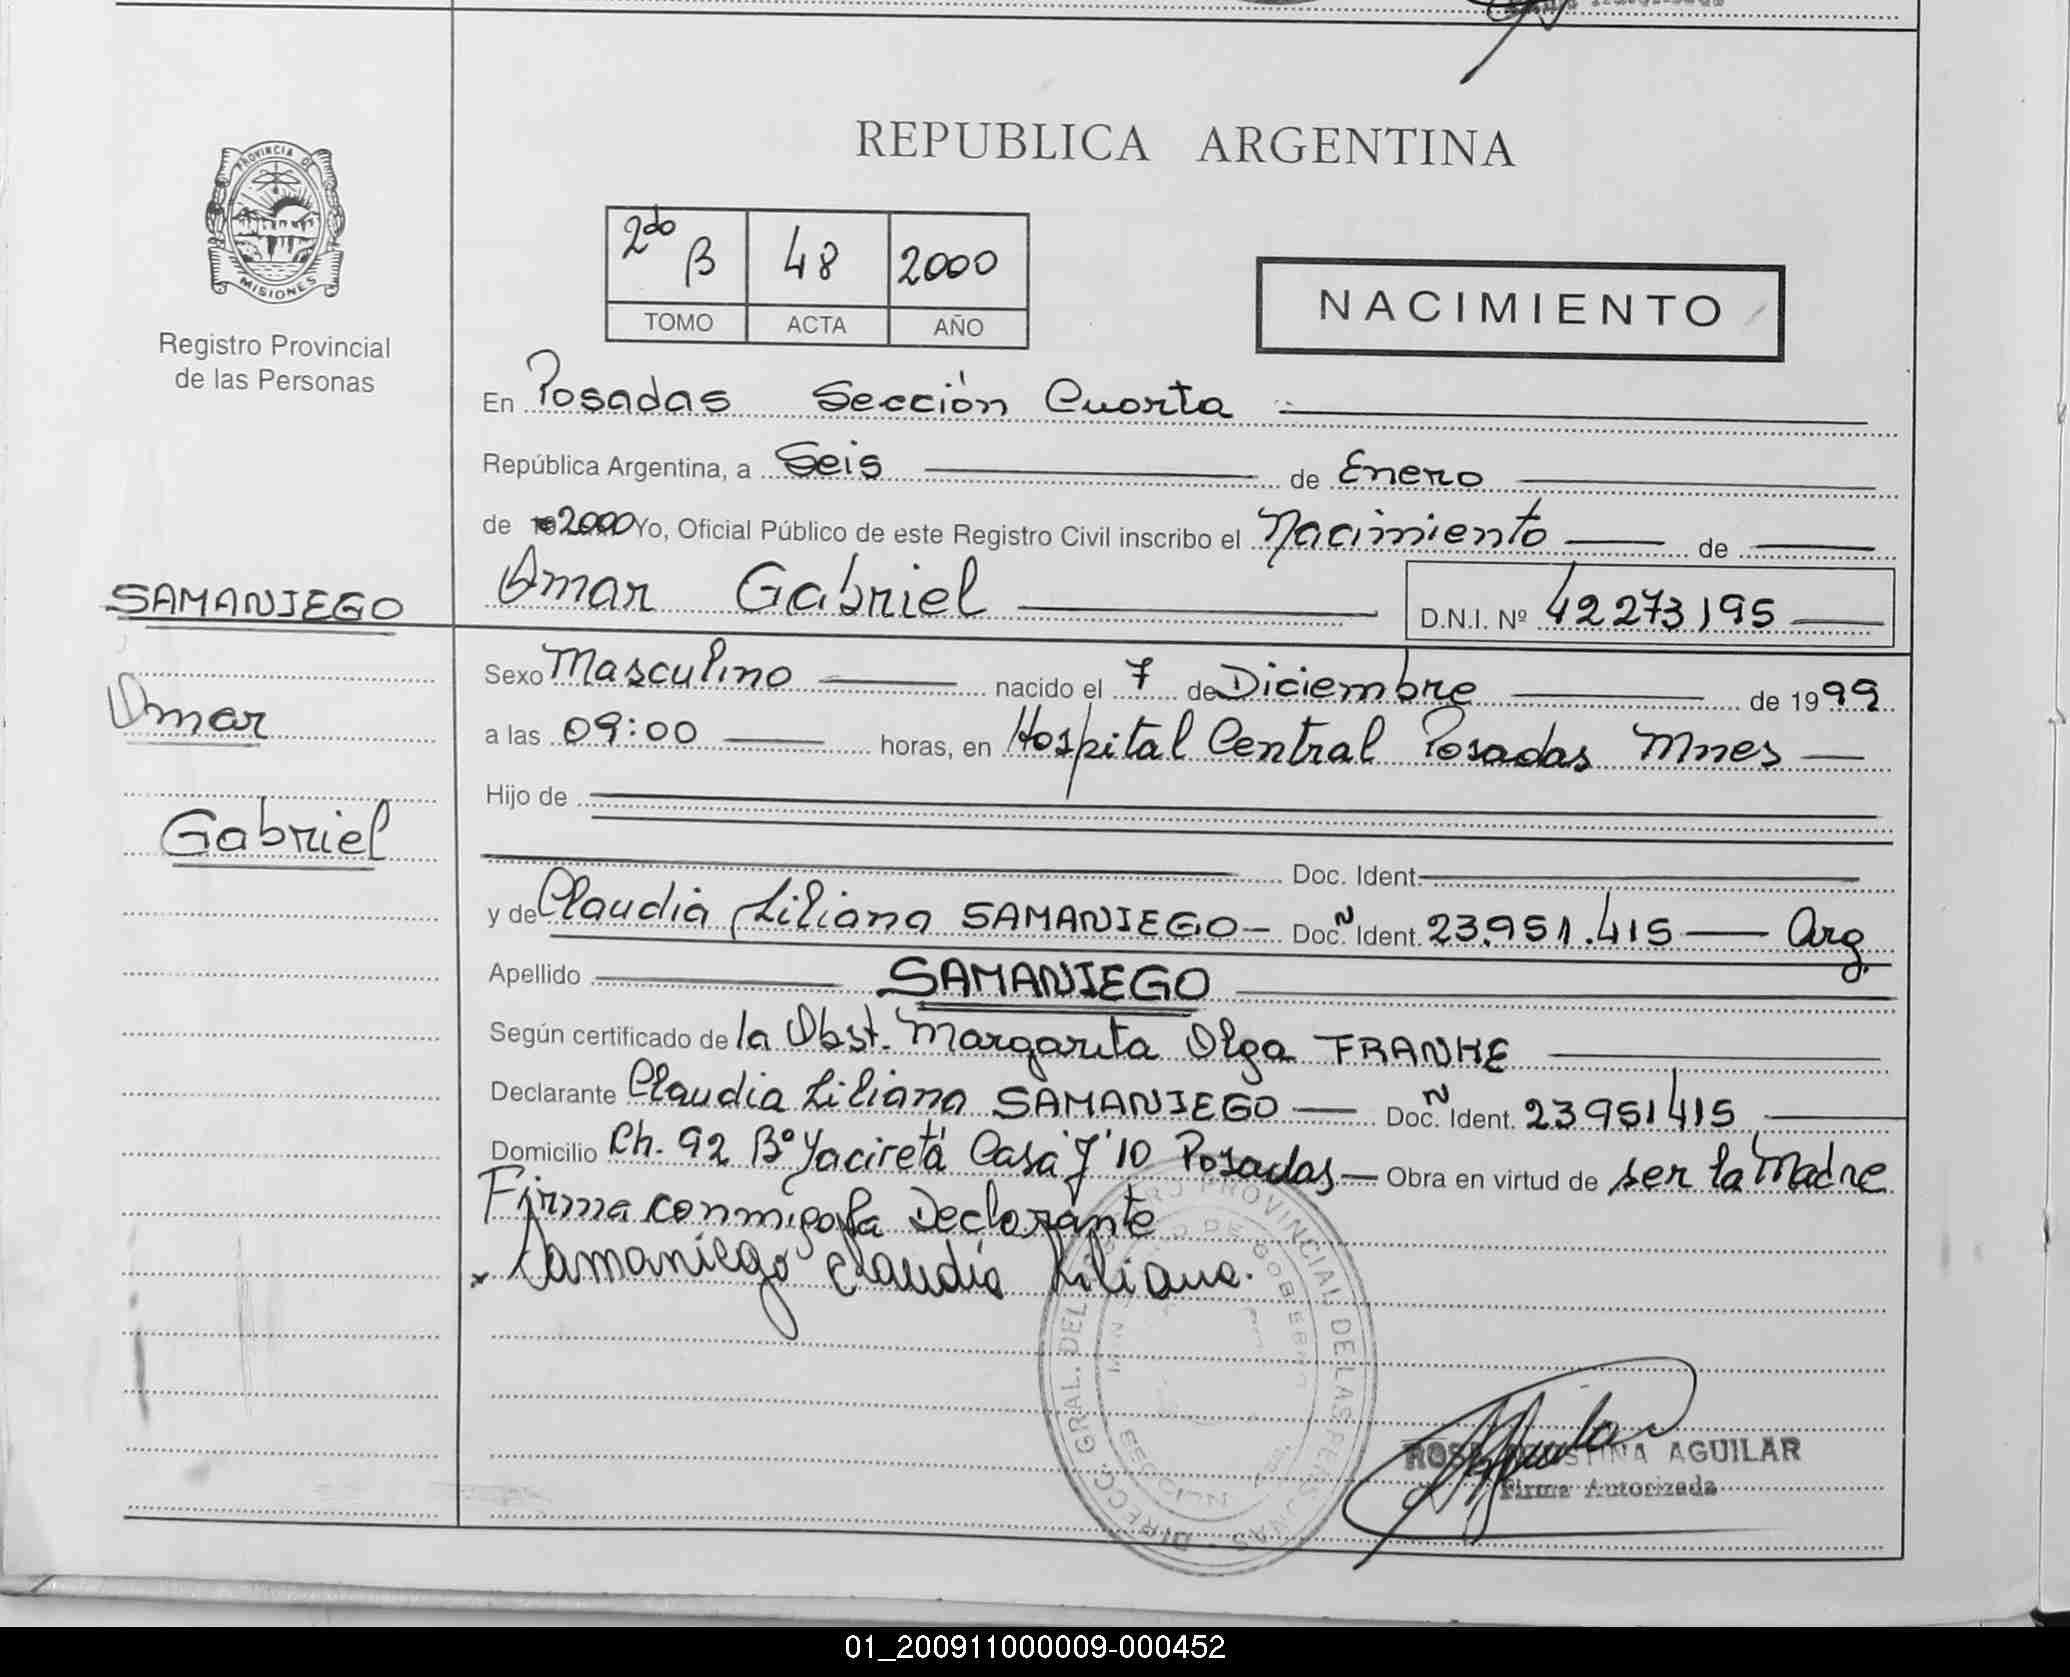 REPUBLICA ARGENTINA
PROVINCIA DE
MISIONES
Registro Provincial
de las Personas
2do B 48 2000
TOMO ACTA AÑO
NACIMIENTO
En Posadas Sección Cuarta
República Argentina, a Seis de Enero
de 2000 Yo, Oficial Público de este Registro Civil inscribo el Nacimiento de
Omar Gabriel D.N.I. Nº 42273195
SAMANIEGO
Omar
Gabriel
Sexo Masculino nacido el 7 de Diciembre de 1999
a las 09:00 horas, en Hospital Central Posadas Mnes
Hijo de
Doc. Ident.
y de Claudia Liliana SAMANIEGO - Doc. N Ident. 23.951.415 Arg.
Apellido SAMANIEGO
Según certificado de la Obst. Margarita Olga FRANKE
Declarante Claudia Liliana SAMANIEGO Doc. N Ident. 23951415
Domicilio Ch. 92 Bº Yaciretá Casa 'J' 10 Posadas - Obra en virtud de ser la Madre
Firma conmigo la Declarante
x Samaniego Claudia Liliana.
DIRECC. GRAL. DEL REGISTRO PROVINCIAL DE LAS PERSONAS
DE GOBIERNO
ROSA AGUILAR
Firma Autorizada
01_200911000009-000452